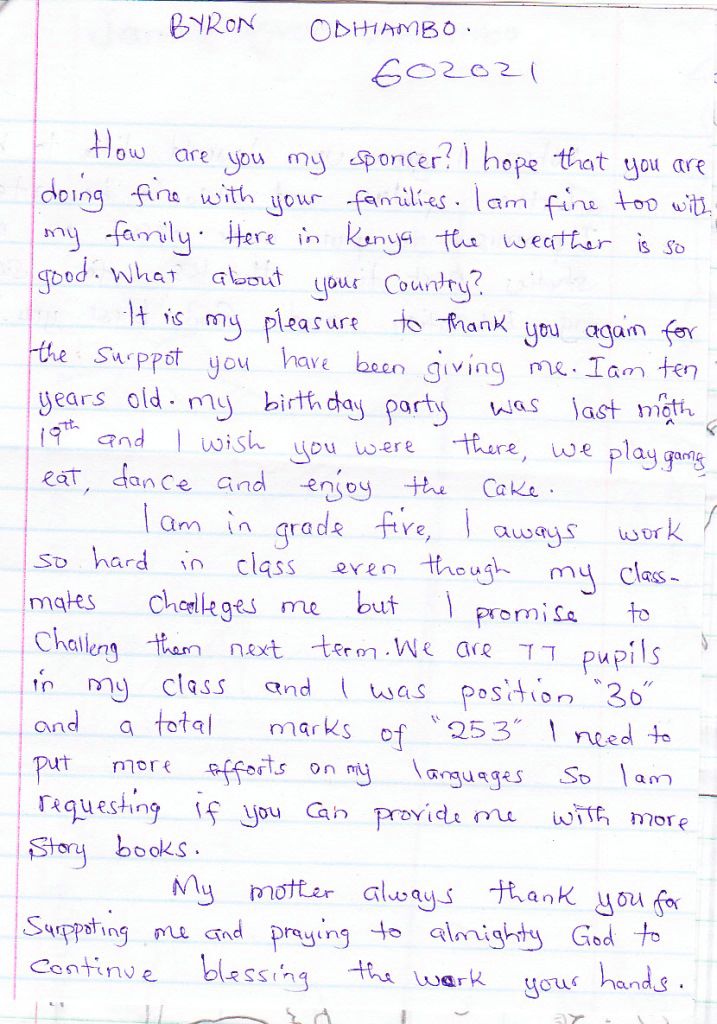 BYRON ODHIAMBO.
602021
How are you my sponcer? I hope that you are
doing fine with your families. I am fine too with
my family. Here in Kenya the weather is so
good. What about your Country?
It is my pleasure to thank you again for
the surppot you have been giving me. I am ten
years old. my birthday party was last month
19th and I wish you were there, we play gams
eat, dance and enjoy the cake.
I am in grade five, I aways work
so hard in class even though my class-
mates challeges me but I promise to
Challeng them next term. We are 77 pupils
in my class and I was position "30"
and a total marks of "253" I need to
put more efforts on my languages so I am
requesting if you can provide me with more
story books.
My mother always thank you for
Surppoting me and praying to almighty God to
continue blessing the work your hands.